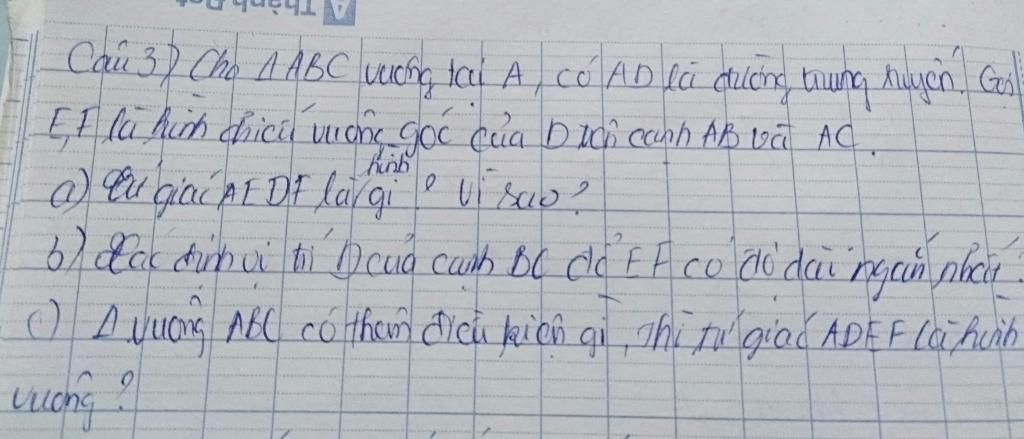 Thành Đạt
Câu 3) Cho Δ ABC vuông tại A, có AD là đường trung tuyến. Gọi
E, F là hình chiếu vuông góc của D lên cạnh AB và AC.
a) Tứ giác AEDF là hình gì? Vì sao?
b) Xác định vị trí D của cạnh BC để EF có độ dài ngắn nhất.
c) Δ vuông ABC có thêm điều kiện gì, thì tứ giác ADEF là hình
vuông?